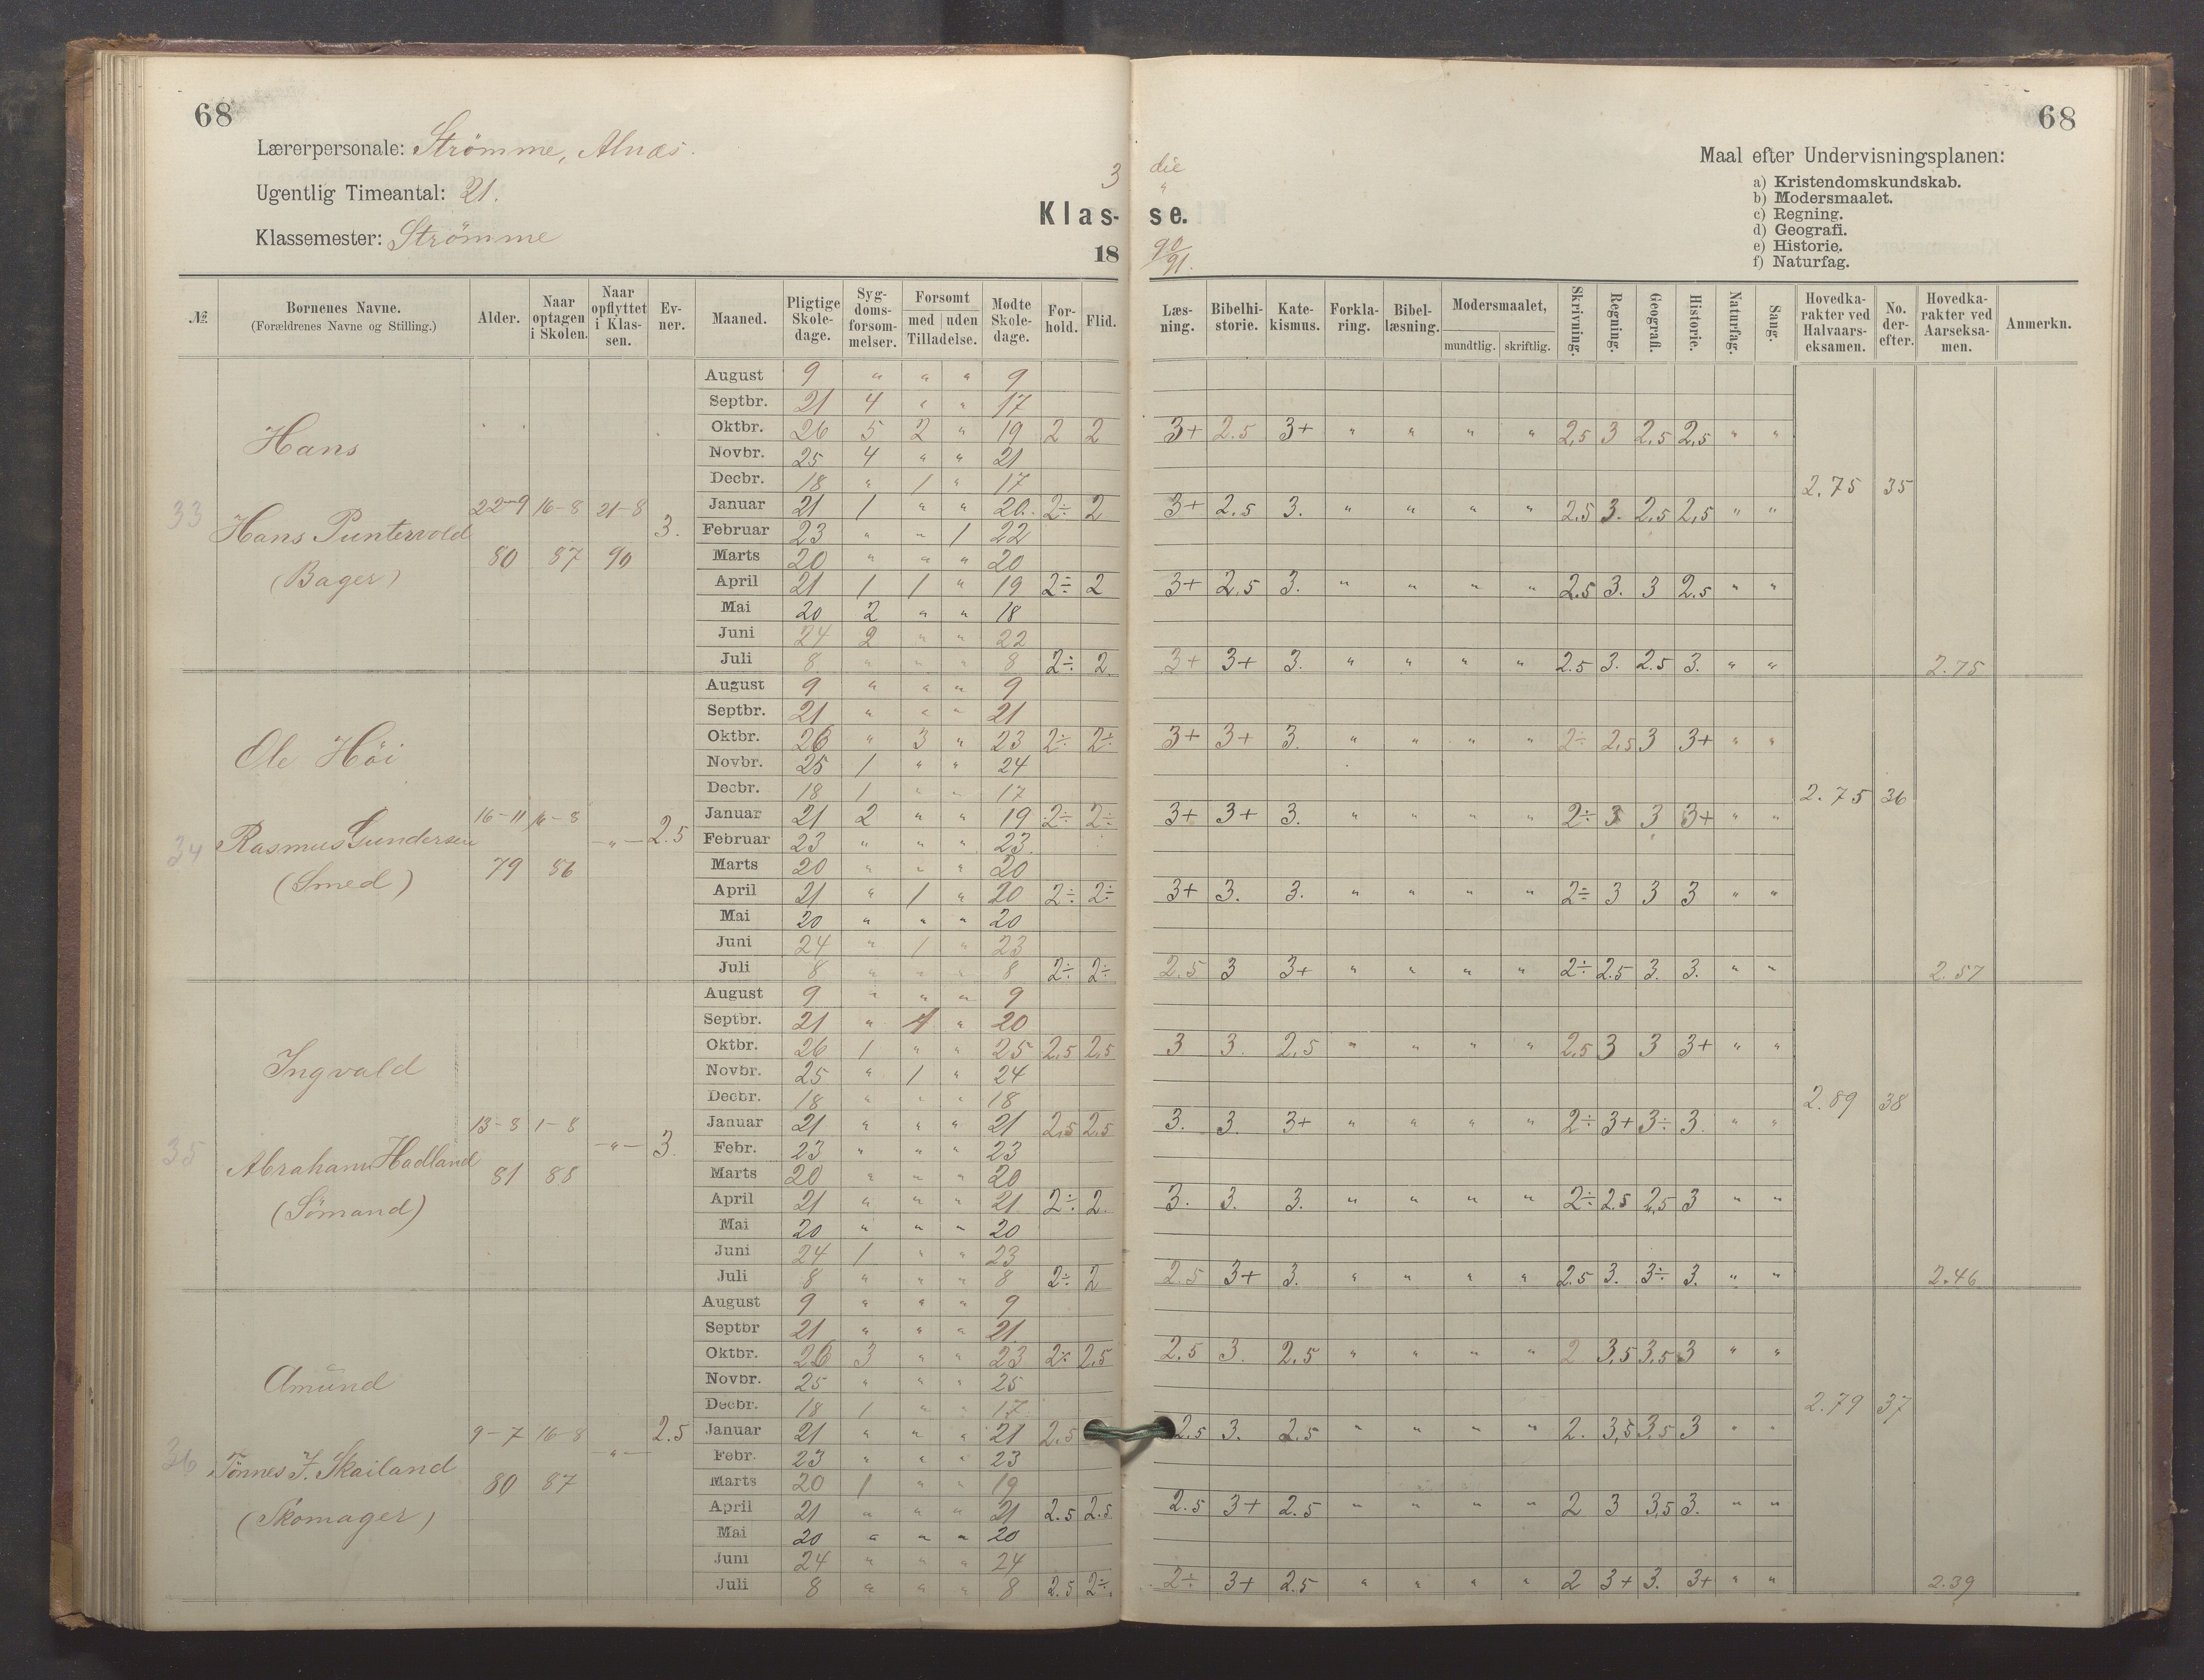 68
68
Lærerpersonale: Strömme, Alnæs.
Ugentlig Timeantal: 21.
Klassemester: Strömme
3 die
Klas- se.
18 90/91.
Maal efter Undervisningsplanen:
a) Kristendomskundskab.
b) Modersmaalet.
c) Regning.
d) Geografi.
e) Historie.
f) Naturfag.
№ | Bornenes Navne. (Forældrenes Navne og Stilling.) | Alder. | Naar optagen i Skolen. | Naar opflyttet i Klassen. | Evner. | Maaned. | Pligtige Skoledage. | Sygdomsforsommelser. | Forsomt med uden Tilladelse. | Modte Skoledage. | Forhold. | Flid. | Læsning. | Bibelhistorie. | Katekismus. | Forklaring. | Bibellæsning. | Modersmaalet, mundtlig. skriftlig. | Skrivning. | Regning. | Geografi. | Historie. | Naturfag. | Sang. | Hovedkarakter ved Halvaarseksamen. | No. derefter. | Hovedkarakter ved Aarseksamen. | Anmerkn.
33 Hans
Hans Puntervold
(Bager)
22-9 80 16-8 87 21-8 90 3.
August 9 " " " 9
Septbr. 21 4 " " 17
Oktbr. 26 5 2 " 19 2 2 3+ 2.5 3+ " " " " 2,5 3 2,5 2,5 " "
Novbr. 25 4 " " 21
Decbr. 18 " 1 " 17
2.75 35
Januar 21 1 " " 20. 2÷ 2 3+ 2.5 3. " " " " 2.5 3. 2,5 2,5 " "
Februar 23 " " 1 22
Marts 20 " " " 20
April 21 1 1 " 19 2÷ 2 3+ 2.5 3. " " " " 2.5 3. 3 2.5 " "
Mai 20 2 " " 18
Juni 24 2 " " 22
Juli 8 " " " 8 2÷ 2 3+ 3+ 3. " " " " 2.5 3. 2.5 3. " " 2.75
34 Ole Höi
Rasmus Gundersen
(Smed)
16-11 79 16-8 86 -"- 2.5
August 9 " " " 9
Septbr. 21 " " " 21
Oktbr. 26 " 3 " 23 2÷ 2÷ 3+ 3+ 3. " " " " 2÷ 2,5 3 3+ " "
Novbr. 25 1 " " 24
Decbr. 18 1 " " 17
2.75 36
Januar 21 2 " " 19 2÷ 2÷ 3+ 3+ 3. " " " " 2÷ 3 3 3+ " "
Februar 23 " " " 23.
Marts 20 " " " 20
April 21 " 1 " 20 2÷ 2÷ 3+ 3. 3. " " " " 2÷ 3 3 3 " "
Mai 20 " " " 20
Juni 24 " 1 " 23
Juli 8 " " " 8 2÷ 2÷ 2.5 3 3+ " " " " 2÷ 2.5 3. 3. " " 2.57
35 Ingvald
Abraham Hadland
(Sömand)
13-8 81 1-8 88 -"- 3.
August 9 " " " 9
Septbr. 21 " 1 " 20
Oktbr. 26 1 " " 25 2,5 2,5 3 3. 2,5 " " " " 2,5 3 3 3+ " "
Novbr. 25 " 1 " 24
Decbr. 18 " " " 18
2.89 38
Januar 21 " " " 21 2,5 2.5 3. 3. 3+ " " " " 2÷ 3+ 3÷ 3. " "
Febr. 23 " " " 23
Marts 20 " " " 20
April 21 " " " 21 2÷ 2. 3. 3. 3. " " " " 2÷ 2.5 2,5 3 " "
Mai 20 " " " 20
Juni 24 1 " " 23
Juli 8 " " " 8 2÷ 2 2.5 3+ 3. " " " " 2.5 3. 3÷ 3. " " 2.46
36 Amund
Tönnes J. Skailand
(Skomager)
9-7 80 16-8 87 -"- 2.5
August 9 " " " 9
Septbr 21 " " " 21.
Oktbr. 26 3 " " 23 2÷ 2,5 2.5 3. 2,5 " " " " 2 3,5 3,5 3 " "
Novbr. 25 " " " 25
Decbr. 18 1 " " 17.
2.79 37
Januar 21 " " " 21 2,5 2.5 3. 2.5 " " " " 2. 3,5 3,5 3 " "
Febr. 23 " " " 23
Marts 20 1 " " 19
April 21 " " " 21 2.5 2.5 2.5 3+ 2.5 " " " " 2 3 3,5 3. " "
Mai 20 " " " 20
Juni 24 " " " 24
Juli 8 " " " 8 2.5 2÷. 2÷ 3+ 2.5 " " " " 2 3+ 3. 3+ " " 2.39